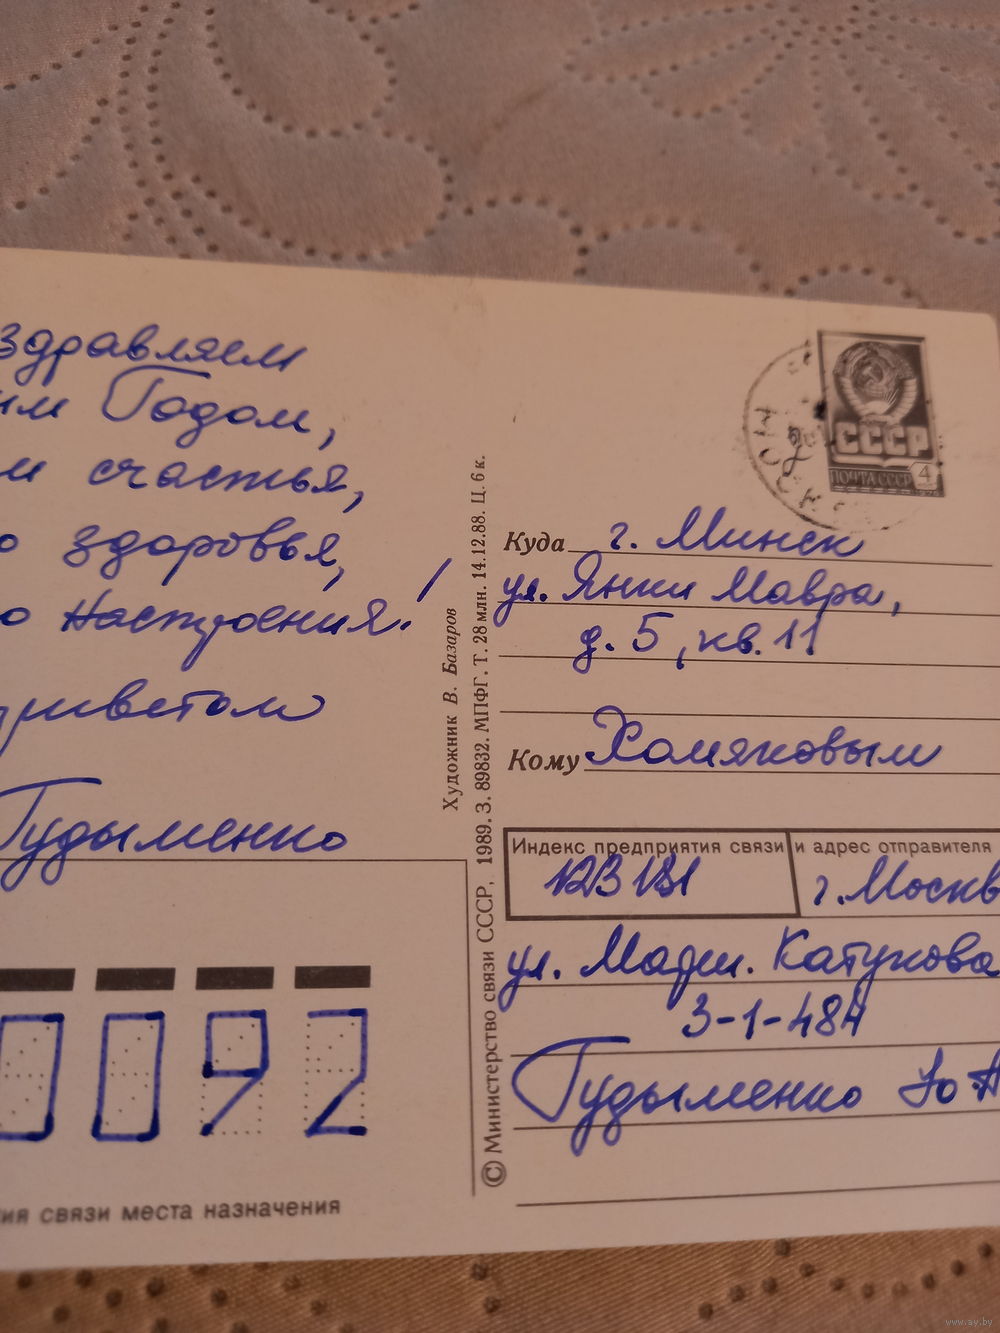 здравляем
им Годом,
м счастья,
о здоровья,
о настроения!
приветом
Гудыменко
0092
ия связи места назначения
Художник В. Базаров
© Министерство связи СССР, 1989. З. 89832. МПФГ. Т. 28 млн. 14.12.88. Ц. 6 к.
СССР
ПОЧТА СССР 4
МОСК
Куда г. Минск
ул. Янки Мавра,
д. 5, кв. 11
Кому Хомяковым
Индекс предприятия связи и адрес отправителя
123181 г. Москв
ул. Марш. Катукова
3-1-484
Гудыменко Ю
www.ay.by